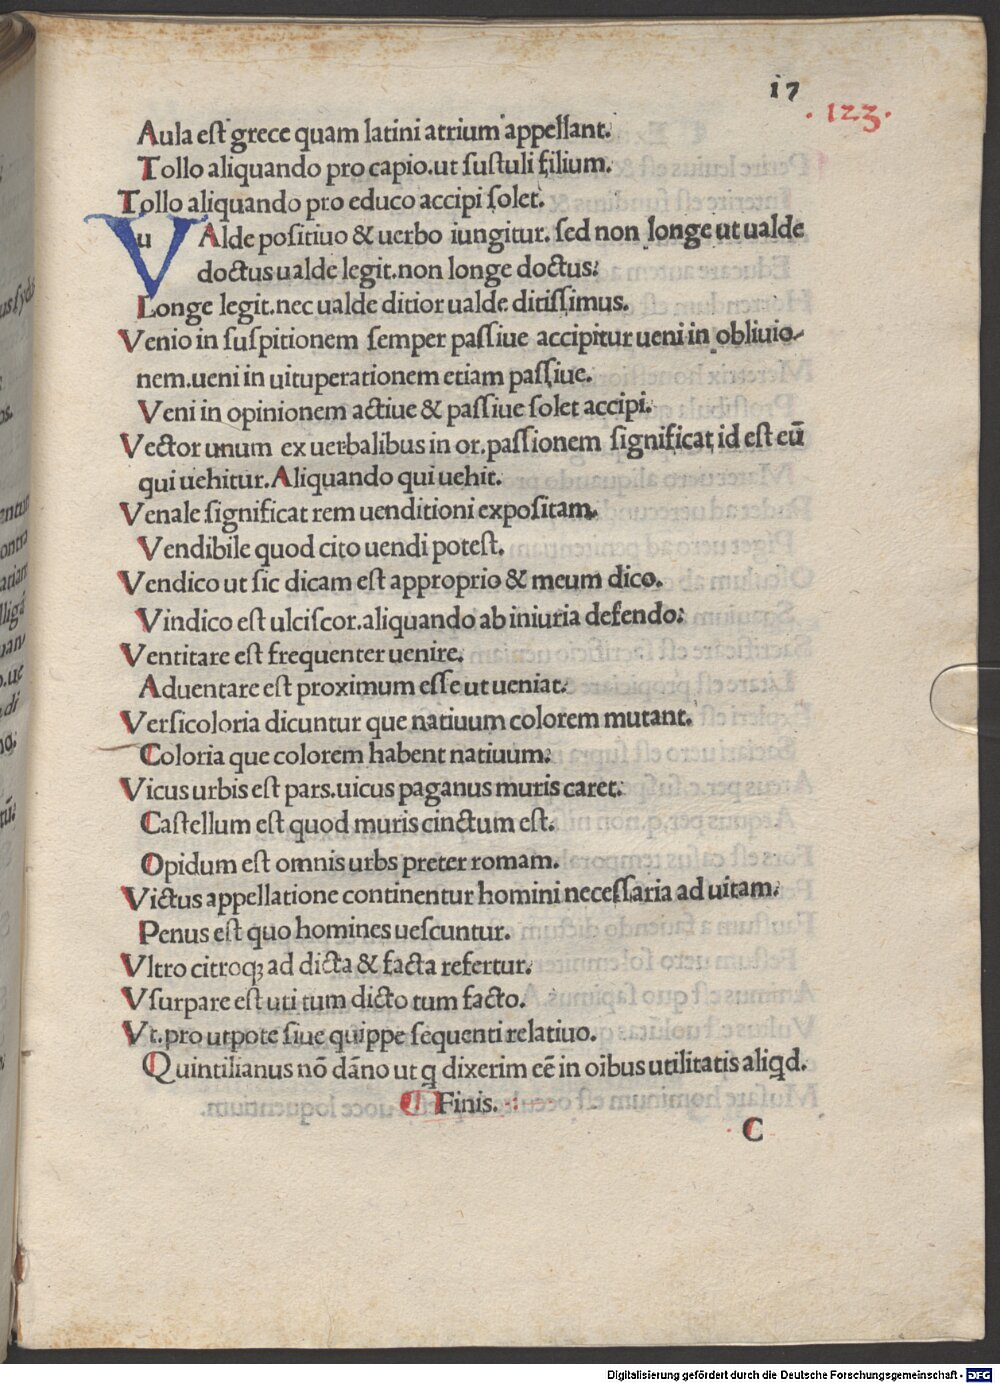 17
. 123 .
Aula est grece quam latini atrium appellant.
Tollo aliquando pro capio.ut sustuli filium.
Tollo aliquando pro educo accipi solet.
VAlde positiuo & uerbo iungitur. sed non longe ut ualde
doctus ualde legit.non longe doctus:
Longe legit.nec ualde ditior ualde ditissimus.
Venio in suspitionem semper passiue accipitur ueni in obliuio-
nem.ueni in uituperationem etiam passiue.
Veni in opinionem actiue & passiue solet accipi.
Vector unum ex uerbalibus in or.passionem significat id est eū
qui uehitur. Aliquando qui uehit.
Venale significat rem uenditioni expositam.
Vendibile quod cito uendi potest.
Vendico ut sic dicam est approprio & meum dico.
Vindico est ulciscor.aliquando ab iniuria defendo:
Ventitare est frequenter uenire.
Aduentare est proximum esse ut ueniat:
Versicoloria dicuntur que natiuum colorem mutant.
Coloria que colorem habent natiuum:
Vicus urbis est pars.uicus paganus muris caret:
Castellum est quod muris cinctum est.
Opidum est omnis urbs preter romam.
Victus appellatione continentur homini necessaria ad uitam:
Penus est quo homines uescuntur.
Vltro citroqꝫ ad dicta & facta refertur:
Vsurpare est uti tum dicto tum facto.
Vt.pro utpote siue quippe sequenti relatiuo.
Quintilianus nō dāno ut q dixerim cē in oibus utilitatis aliqd.
Finis.
C
Digitalisierung gefördert durch die Deutsche Forschungsgemeinschaft - DFG